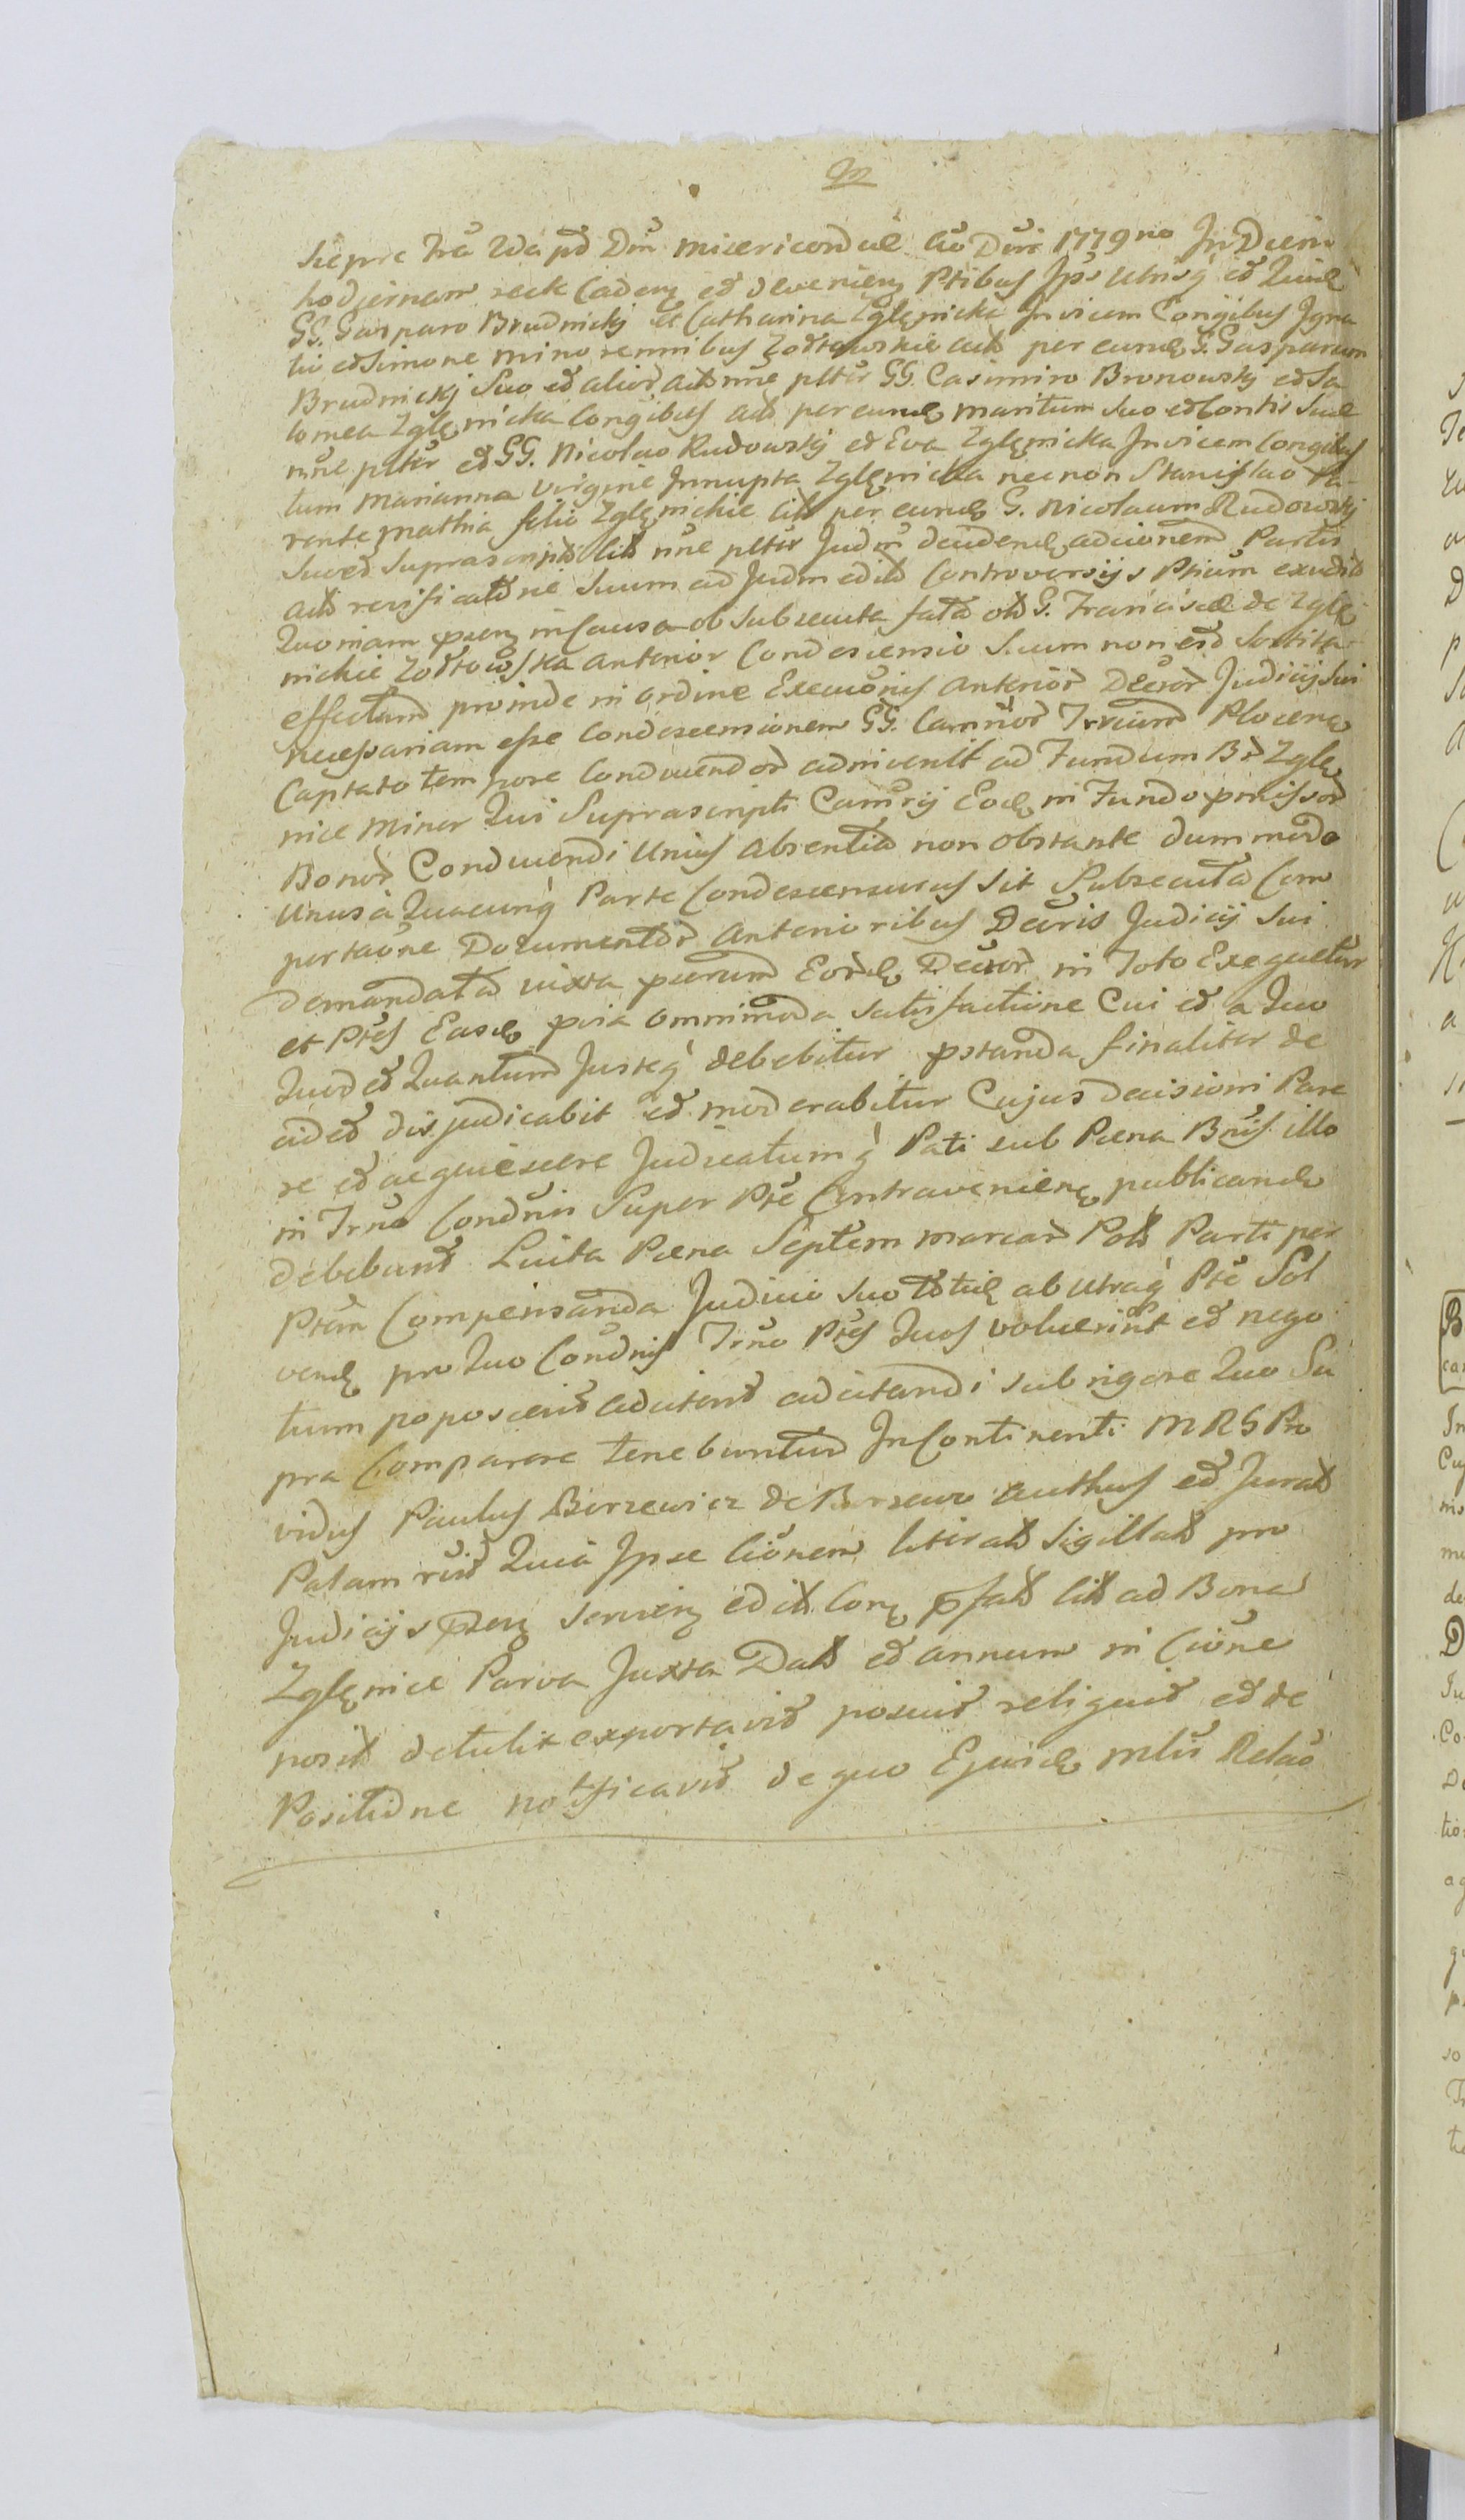 m
Siepre Fra 2da pd Dm misericordiæ Ao Dni 1779no In Diem
hodiernam recte Caden et deveniens Ptibus Ipis Utrisq et Quid
GG. Gasparo Brudnickj et Catharina Zglęnicka Invicem Congibus Igna
tio et Simone minorennibus Żółtowskie actis per eund G. Gasparum
Brudnickj Suo et alior act nne pltur GG. Casimiro Bronowskj et Sa
lomea Zglęnicka Congibus act per eund maritum Suo et Contis Suæ
nne pltur et GG. Nicolao Rudowskj et Eva Zglęnicka Invicem Congibus
tum Marianna Virgine Innupta Zglęnicka necnon Stanislao Pa-
rente Mathia filio Zglęnickie citt per eund G. Nicolaum Rudowskj
Suo et Suprascript citt nne pltur Judm decidend adcitionem Partis
act reificatone Suum ad Judm edit Controversijs Ptium exaudit
Quoniam psens in Causa ob Subsecuta fata olt G. Franciscæ de Zglę
nickie Żółtowska anterior Condescensio Suum non est Sortita
effectum proinde in ordine Executionis anterior Decror Judicij Sui
necessariam esse Condescensionem GG. Camrior Trrium Plocens
Captato tempore Conducendor adinvenit ad Fundum Br Zglę
nice Minor Qui Suprascripti Camrij Eod in Fundo pmissor
Bonor Conducendi Unius Absentia non obstante dummodo
Unus a Quacunq Parte Condescensurus Sit Subsecuta Com
portaone Documentor Anterioribus Decris Judicij Sui
Demandata iuxta psrum Eord Decror in Toto Exequetur
et Ptes Easd pvia omnimoda satisfactione Cui et a Quo
Quod et Quantum Justeq debebitur pstanda finaliter de
cidet disjudicabit et moderabitur Cujus decisioni Pare
re et acquiescere Judicatumq Pati sub Pæna Bnis illo
in Trno Condnis Super Pte Contravenien publicand
debebunt Luita Pæna Septem marcar Polt Parti per
Ptem Compensanda Judicio Suo totid ab Utraq Pte Sol
vend pro Quo Condnis Trno Ptes Quos voluerint et nego
tium poposcerit adcitent adcitandi sub rigore Quo Su
pra Comparere tenebuntur InContinenti MRS Pro
vidus Paulus Borzewicz de Borzewo authus et Jurat
Palam rcit Quia Ipse Cionem literat Sigillat pro
Judicijs psen Servien edit Con psat citt ad Bona
Zglęnice Parva Juxta Dat et annum in Cione
posit detulit exportavit posuit reliquit et de
Positione notificavit de quo Ejusd Mltis Relao